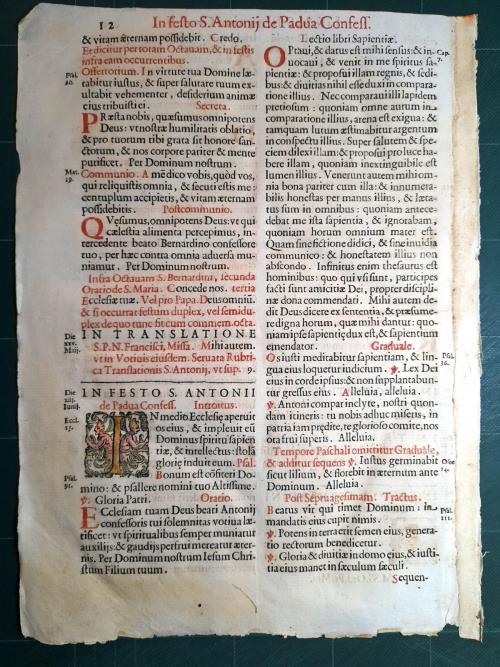 12 In festo S. Antonij de Padua Confess.
& vitam æternam possidebit. Credo.
Et dicitur per totam Octauam, & in festis
infra eam occurrentibus.
Psal. 20.
Offertorium. In virtute tua Domine læ-
tabitur iustus, & super salutare tuum ex-
ultabit vehementer, desiderium animæ
eius tribuisti ei. Secreta.
PRæsta nobis, quæsumus omnipotens
Deus: vt nostræ humilitatis oblatio,
& pro tuorum tibi grata sit honore san-
ctorum, & nos corpore pariter & mente
purificet. Per Dominum nostrum.
Mat. 19.
Communio. Amẽdico vobis, quòd vos,
qui reliquistis omnia, & secuti estis me:
centuplum accipietis, & vitam æternam
possidebitis. Postcommunio.
QVęsumus, omnipotens Deus: vt qui
cælestia alimenta percepimus, in-
tercedente beato Bernardino confessore
tuo, per hæc contra omnia aduersa mu-
niamur. Per Dominum nostrum.
Infra Octauam S. Bernardini, secunda
Oratio de S. Maria. Concede nos. tertia
Ecclesiæ tuæ. Vel pro Papa. Deus omniũ.
& si occurrat festum duplex, vel semidu
plex de quo tunc fit cum commem. octa.
Die xxv. Maij.
IN TRANSLATIONE
S. P. N. Francisci, Missa. Mihi autem.
vt in Votiuis eiusdem. Seruata Rubri-
ca Translationis S. Antonij, vt sup. 9.
Die xiij. Iunij.
IN FESTO S. ANTONII
de Padua Confess. Introitus.
Eccl. 15.
IN medio Ecclesię aperuit
os eius, & impleuit eũ
Dominus spiritu sapien
tiæ, & intellectus: stolã
glorię induit eum. Psal.
Psal. 91.
Bonum est cõfiteri Do-
mino: & psallere nomini tuo Altissime.
℣. Gloria Patri. Oratio.
ECclesiam tuam Deus beati Antonij
confessoris tui solemnitas votiua læ-
tificet: vt spiritualibus semper muniatur
auxilijs: & gaudijs perfrui mereatur æter-
nis. Per Dominum nostrum Iesum Chri-
stum Filium tuum.
Lectio libri Sapientiæ.
Cap. 7.
OPtaui, & datus est mihi sensus: & in-
uocaui, & venit in me spiritus sa-
pientiæ: & proposui illam regnis, & sedi-
bus: & diuitias nihil esse duxi in compara-
tione illius. Nec comparaui illi lapidem
pretiosum: quoniam omne aurum in-
comparatione illius, arena est exigua: &
tamquam lutum æstimabitur argentum
in conspectu illius. Super salutem & spe-
ciem dilexi illam: & proposui pro luce ha-
bere illam, quoniam inextinguibile est
lumen illius. Venerunt autem mihi om-
nia bona pariter cum illa: & innumera-
bilis honestas per manus illius, & læta-
tus sum in omnibus: quoniam antece-
debat me ista sapientia, & ignorabam,
quoniam horum omnium mater est.
Quam sine fictione didici, & sine inuidia
communico: & honestatem illius non
abscondo. Infinitus enim thesaurus est
hominibus: quo qui vsi sunt, participes
facti sunt amicitiæ Dei, propter discipli-
næ dona commendati. Mihi autem de-
dit Deus dicere ex sententia, & præsume-
re digna horum, quæ mihi dantur: quo-
niam ipse sapientię dux est, & sapientium
emendator. Graduale.
Psal. 36.
Os iusti meditabitur sapientiam, & lin-
gua eius loquetur iudicium. ℣. Lex Dei
eius in corde ipsius: & non supplantabun-
tur gressus eius. Alleluia, alleluia.
℣. Antoni compar inclyte, nostri quon-
dam itineris: tu nobis adhuc miseris, in
patria iam ameritis, te glorioso comite, nos
ora frui superis. Alleluia.
Tempore Paschali omittitur Graduale,
& additur sequens ℣. Iustus germinabit
Osee 14.
sicut lilium, & florebit in æternum ante
Dominum. Alleluia.
Post Septuagesimam. Tractus.
Psal. 111.
Beatus vir qui timet Dominum: in
mandatis eius cupit nimis.
℣. Potens in terra erit semen eius, genera-
tio rectorum benedicetur.
℣. Gloria & diuitiæ in domo eius, & iusti-
tia eius manet in sæculum sæculi.
Sequen-